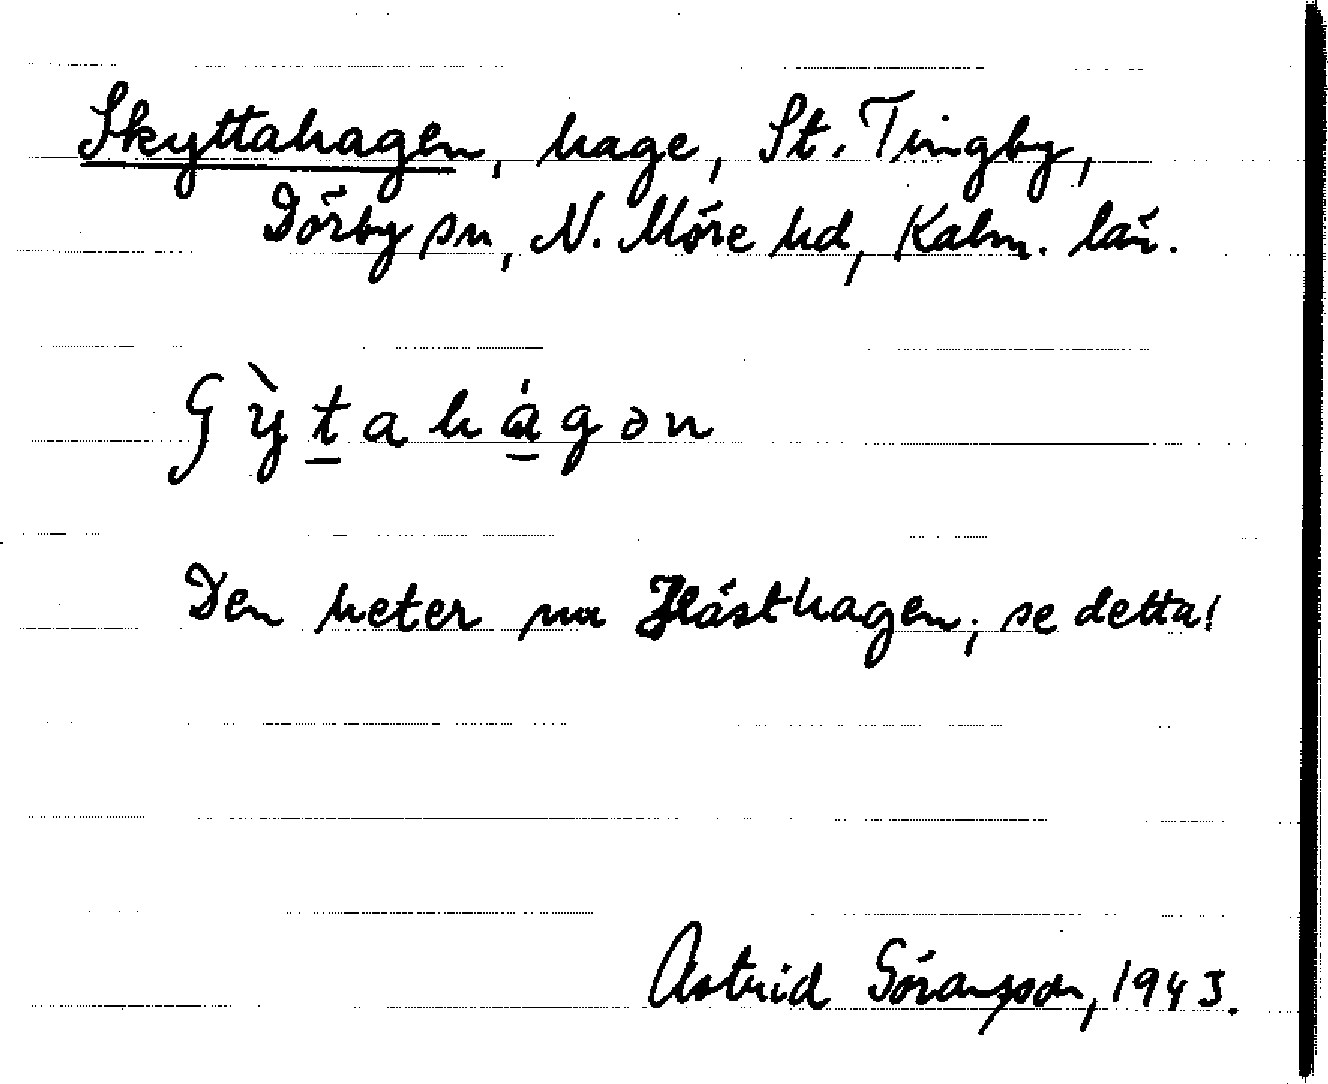 Skyttahagen, hage, St. Tingby,
Dörby sn, N. Möre hd, Kalm. län.
ʃỳṯahá̱gən
Den heter nu Hästhagen; se detta!
Astrid Göransson, 1943.